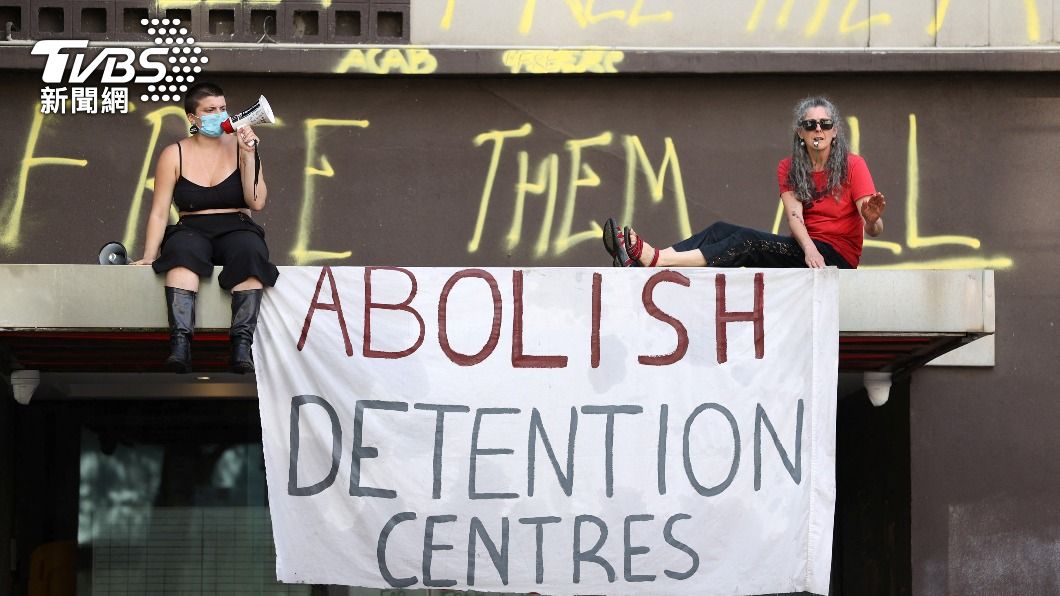 TVBS
新聞網
FREE THEM
ACAB
FREE THEM ALL
ABOLISH
DETENTION
CENTRES